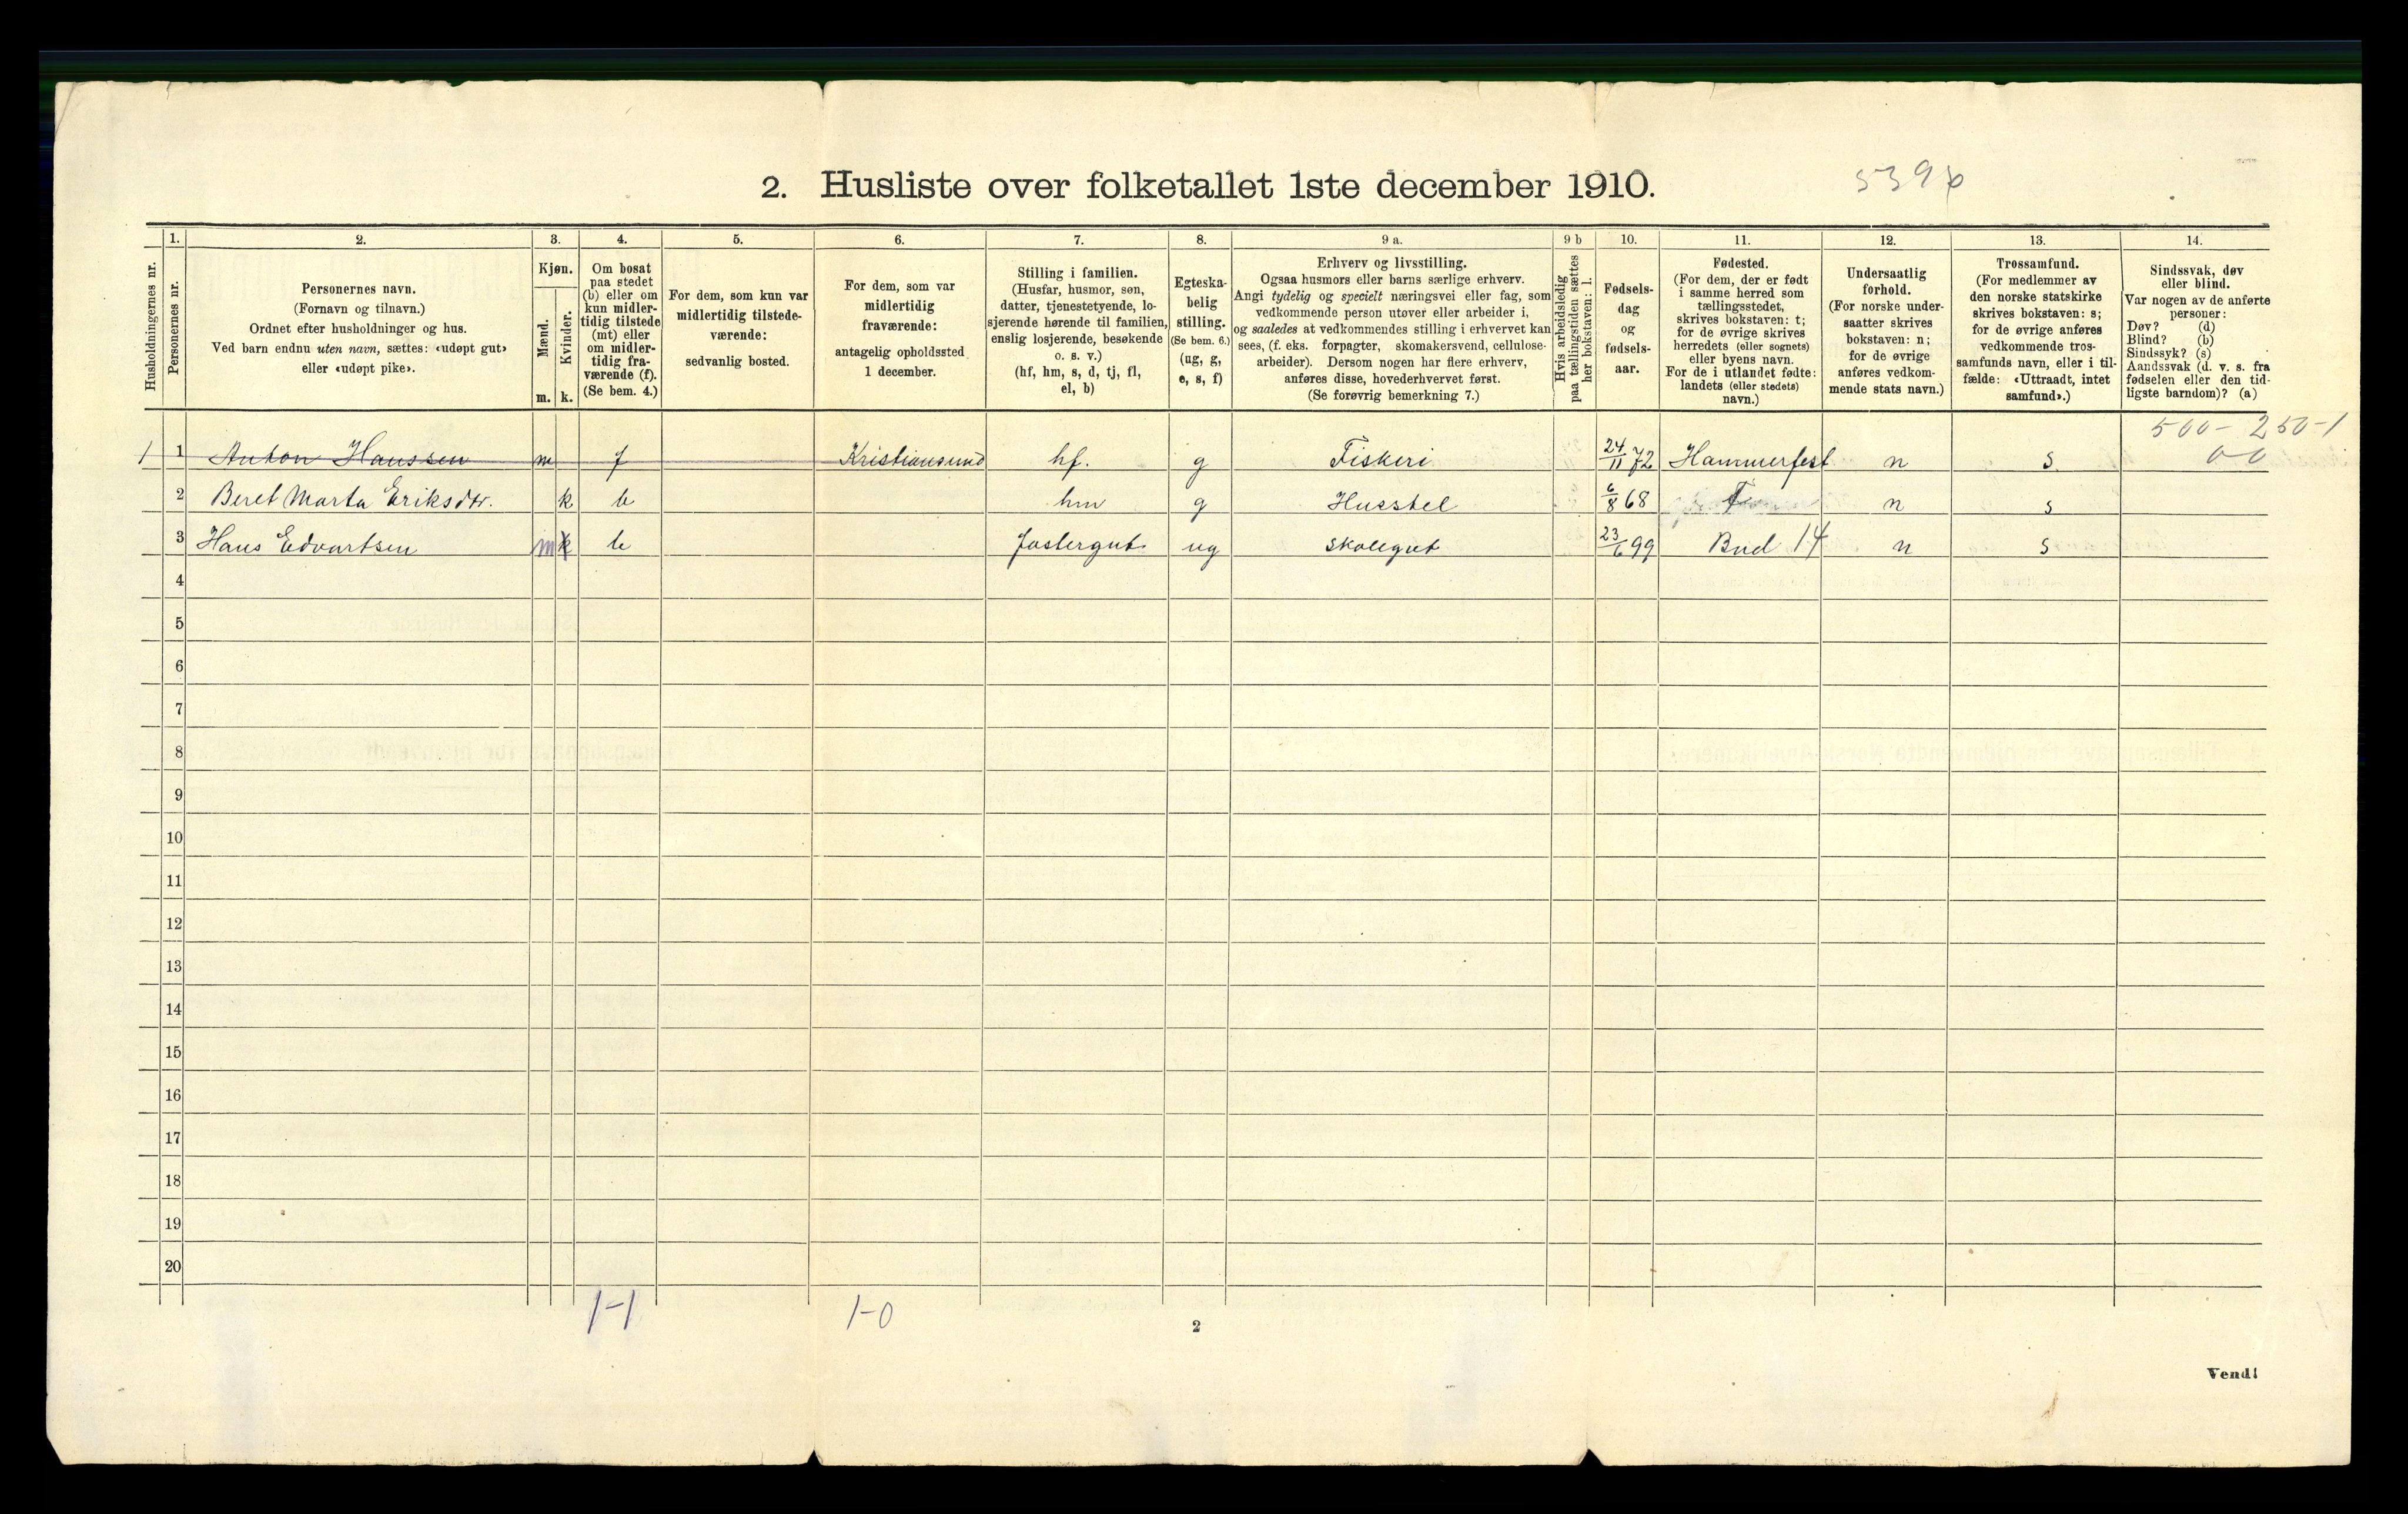 2. Husliste over folketallet 1ste december 1910.
5396
Husholdningernes nr.
1.
Personernes nr.
2.
Personernes navn.
(Fornavn og tilnavn.)
Ordnet efter husholdninger og hus.
Ved barn endnu uten navn, sættes: «udøpt gut»
eller «udøpt pike».
3.
Kjøn.
Mænd.
Kvinder.
m. k.
4.
Om bosat
paa stedet
(b) eller om
kun midler-
tidig tilstede
(mt) eller
om midler-
tidig fra-
værende (f).
(Se bem. 4.)
5.
For dem, som kun var
midlertidig tilstede-
værende:
sedvanlig bosted.
6.
For dem, som var
midlertidig
fraværende:
antagelig opholdssted
1 december.
7.
Stilling i familien.
(Husfar, husmor, søn,
datter, tjenestetyende, lo-
sjerende hørende til familien,
enslig losjerende, besøkende
o. s. v.)
(hf, hm, s, d, tj, fl,
el, b)
8.
Egteska-
belig
stilling.
(Se bem. 6.)
(ug, g,
e, s, f)
9 a.
Erhverv og livsstilling.
Ogsaa husmors eller barns særlige erhverv.
Angi tydelig og specielt næringsvei eller fag, som
vedkommende person utøver eller arbeider i,
og saaledes at vedkommendes stilling i erhvervet kan
sees, (f. eks. forpagter, skomakersvend, cellulose-
arbeider). Dersom nogen har flere erhverv,
anføres disse, hovederhvervet først.
(Se forøvrig bemerkning 7.)
9 b
Hvis arbeidsledig
paa tællingstiden sættes
her bokstaven: l.
10.
Fødsels-
dag
og
fødsels-
aar.
11.
Fødested.
(For dem, der er født
i samme herred som
tællingsstedet,
skrives bokstaven: t;
for de øvrige skrives
herredets (eller sognets)
eller byens navn.
For de i utlandet fødte:
landets (eller stedets)
navn.)
12.
Undersaatlig
forhold.
(For norske under-
saatter skrives
bokstaven: n;
for de øvrige
anføres vedkom-
mende stats navn.)
13.
Trossamfund.
(For medlemmer av
den norske statskirke
skrives bokstaven: s;
for de øvrige anføres
vedkommende tros-
samfunds navn, eller i til-
fælde: «Uttraadt, intet
samfund».)
14.
Sindssvak, døv
eller blind.
Var nogen av de anførte
personer:
Døv? (d)
Blind? (b)
Sindssyk? (s)
Aandssvak (d. v. s. fra
fødselen eller den tid-
ligste barndom)? (a)
500 - 250 - 1
00
1 1 Anton Hanssen m f Kristiansund hf. g Fiskeri 24/11 72 Hammerfest n s
2 Beret Marta Eriksdtr. k b hm g Husstel 6/8 68 n s
3 Hans Edvartsen m k b fostergut ug skolegut 23/6 99 Bud 14 n s
4
5
6
7
8
9
10
11
12
13
14
15
16
17
18
19
20
1-1 1-0
2
Vend!